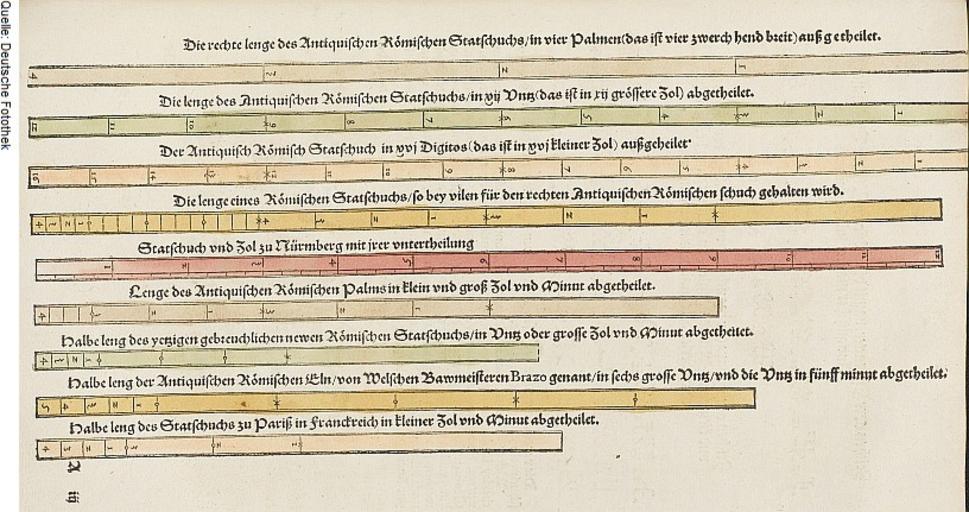 Quelle: Deutsche Fotothek
Die rechte lenge des Antiquischen Römischen Statschuchs/in vier Palmen(das ist vier zwerch hend breit)außgetheilet.
4 3 2 1
Die lenge des Antiquischen Römischen Statschuchs/in xij Vntz(das ist in xij grössere Zol) abgetheilet.
12 11 10 9 8 7 6 5 4 3 2 1
Der Antiquisch Römisch Statschuch in xvj Digitos(das ist in xvj kleiner Zol) außgeheilet
16 15 14 13 12 11 10 9 8 7 6 5 4 3 2 1
Die lenge eines Römischen Statschuchs/so bey vilen für den rechten Antiquischen Römischen schuch gehalten wird.
4 3 2 1 4 3 2 1 3 2 1
Statschuch vnd Zol zu Nürmberg mit jrer vntertheilung
1 2 3 4 5 6 7 8 9 10 11 12
Lenge des Antiquischen Römischen Palms in klein vnd groß Zol vnd Minut abgetheilet.
4 2 1 3 2 1
Halbe leng des yetzigen gebreuchlichen newen Römischen Statschuchs/in Vntz oder grosse Zol vnd Minut abgetheilet.
4 3 2 1
Halbe leng der Antiquischen Römischen Eln/von Welschen Bawmeisteren Brazo genant/in sechs grosse Vntz/vnd die Vntz in fünff minut abgetheilet.
5 4 3 2 1
Halbe leng des Statschuchs zu Pariß in Franckreich in kleiner Zol vnd Minut abgetheilet.
4 3 2 1 2 1
A iij